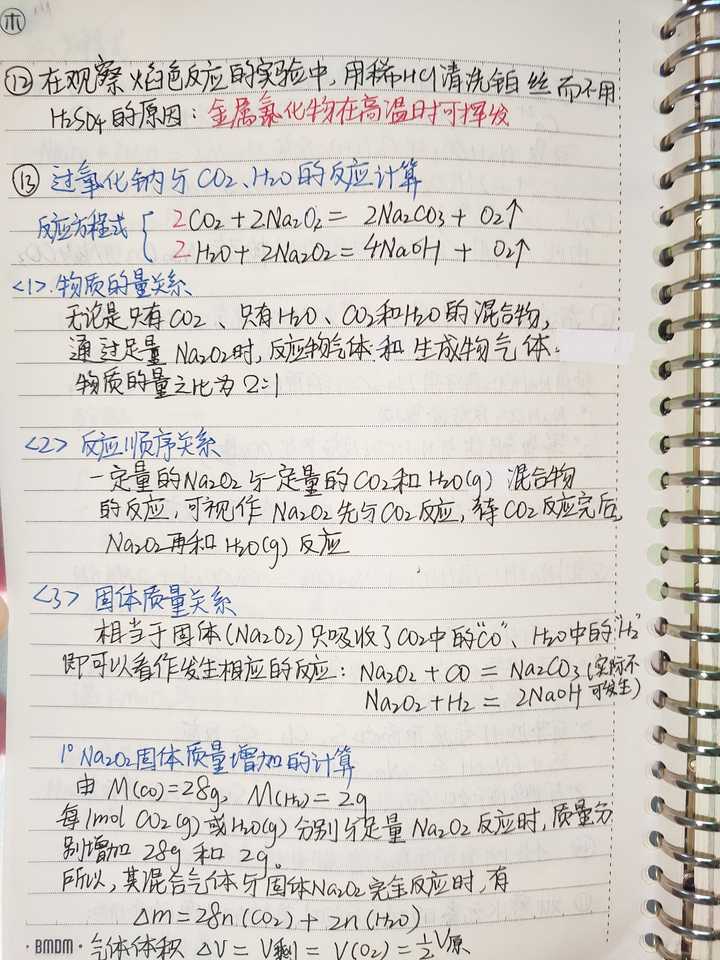 木
⑫ 在观察焰色反应的实验中,用稀HCl清洗铂丝而不用
H₂SO₄的原因:金属氯化物在高温时可挥发
⑬ 过氧化钠与CO₂、H₂O的反应计算
反应方程式 { 2CO₂+2Na₂O₂= 2Na₂CO₃+ O₂↑
2H₂O+2Na₂O₂=4NaOH + O₂↑
<1>.物质的量关系
无论是只有CO₂、只有H₂O、CO₂和H₂O的混合物,
通过足量Na₂O₂时,反应物气体和生成物气体.
物质的量之比为2:1
<2> 反应顺序关系
一定量的Na₂O₂与一定量的CO₂和H₂O(g) 混合物
的反应,可视作Na₂O₂先与CO₂反应,待CO₂反应完后,
Na₂O₂再和H₂O(g)反应
<3> 固体质量关系
相当于固体(Na₂O₂)只吸收了CO₂中的"CO"、H₂O中的"H₂"
即可以看作发生相应的反应:Na₂O₂+CO = Na₂CO₃(实际不
Na₂O₂+H₂ = 2NaOH 可发生)
1° Na₂O₂固体质量增加的计算
由M(CO)=28g, M(H₂)=2g
每1mol CO₂(g)或H₂O(g)分别与足量Na₂O₂反应时,质量分
别增加 28g 和 2g。
所以,某混合气体与固体Na₂O₂完全反应时,有
Δm=28n(CO₂)+2n(H₂O)
·BMDM· 气体体积 ΔV = V剩 = V(O₂)=½V原